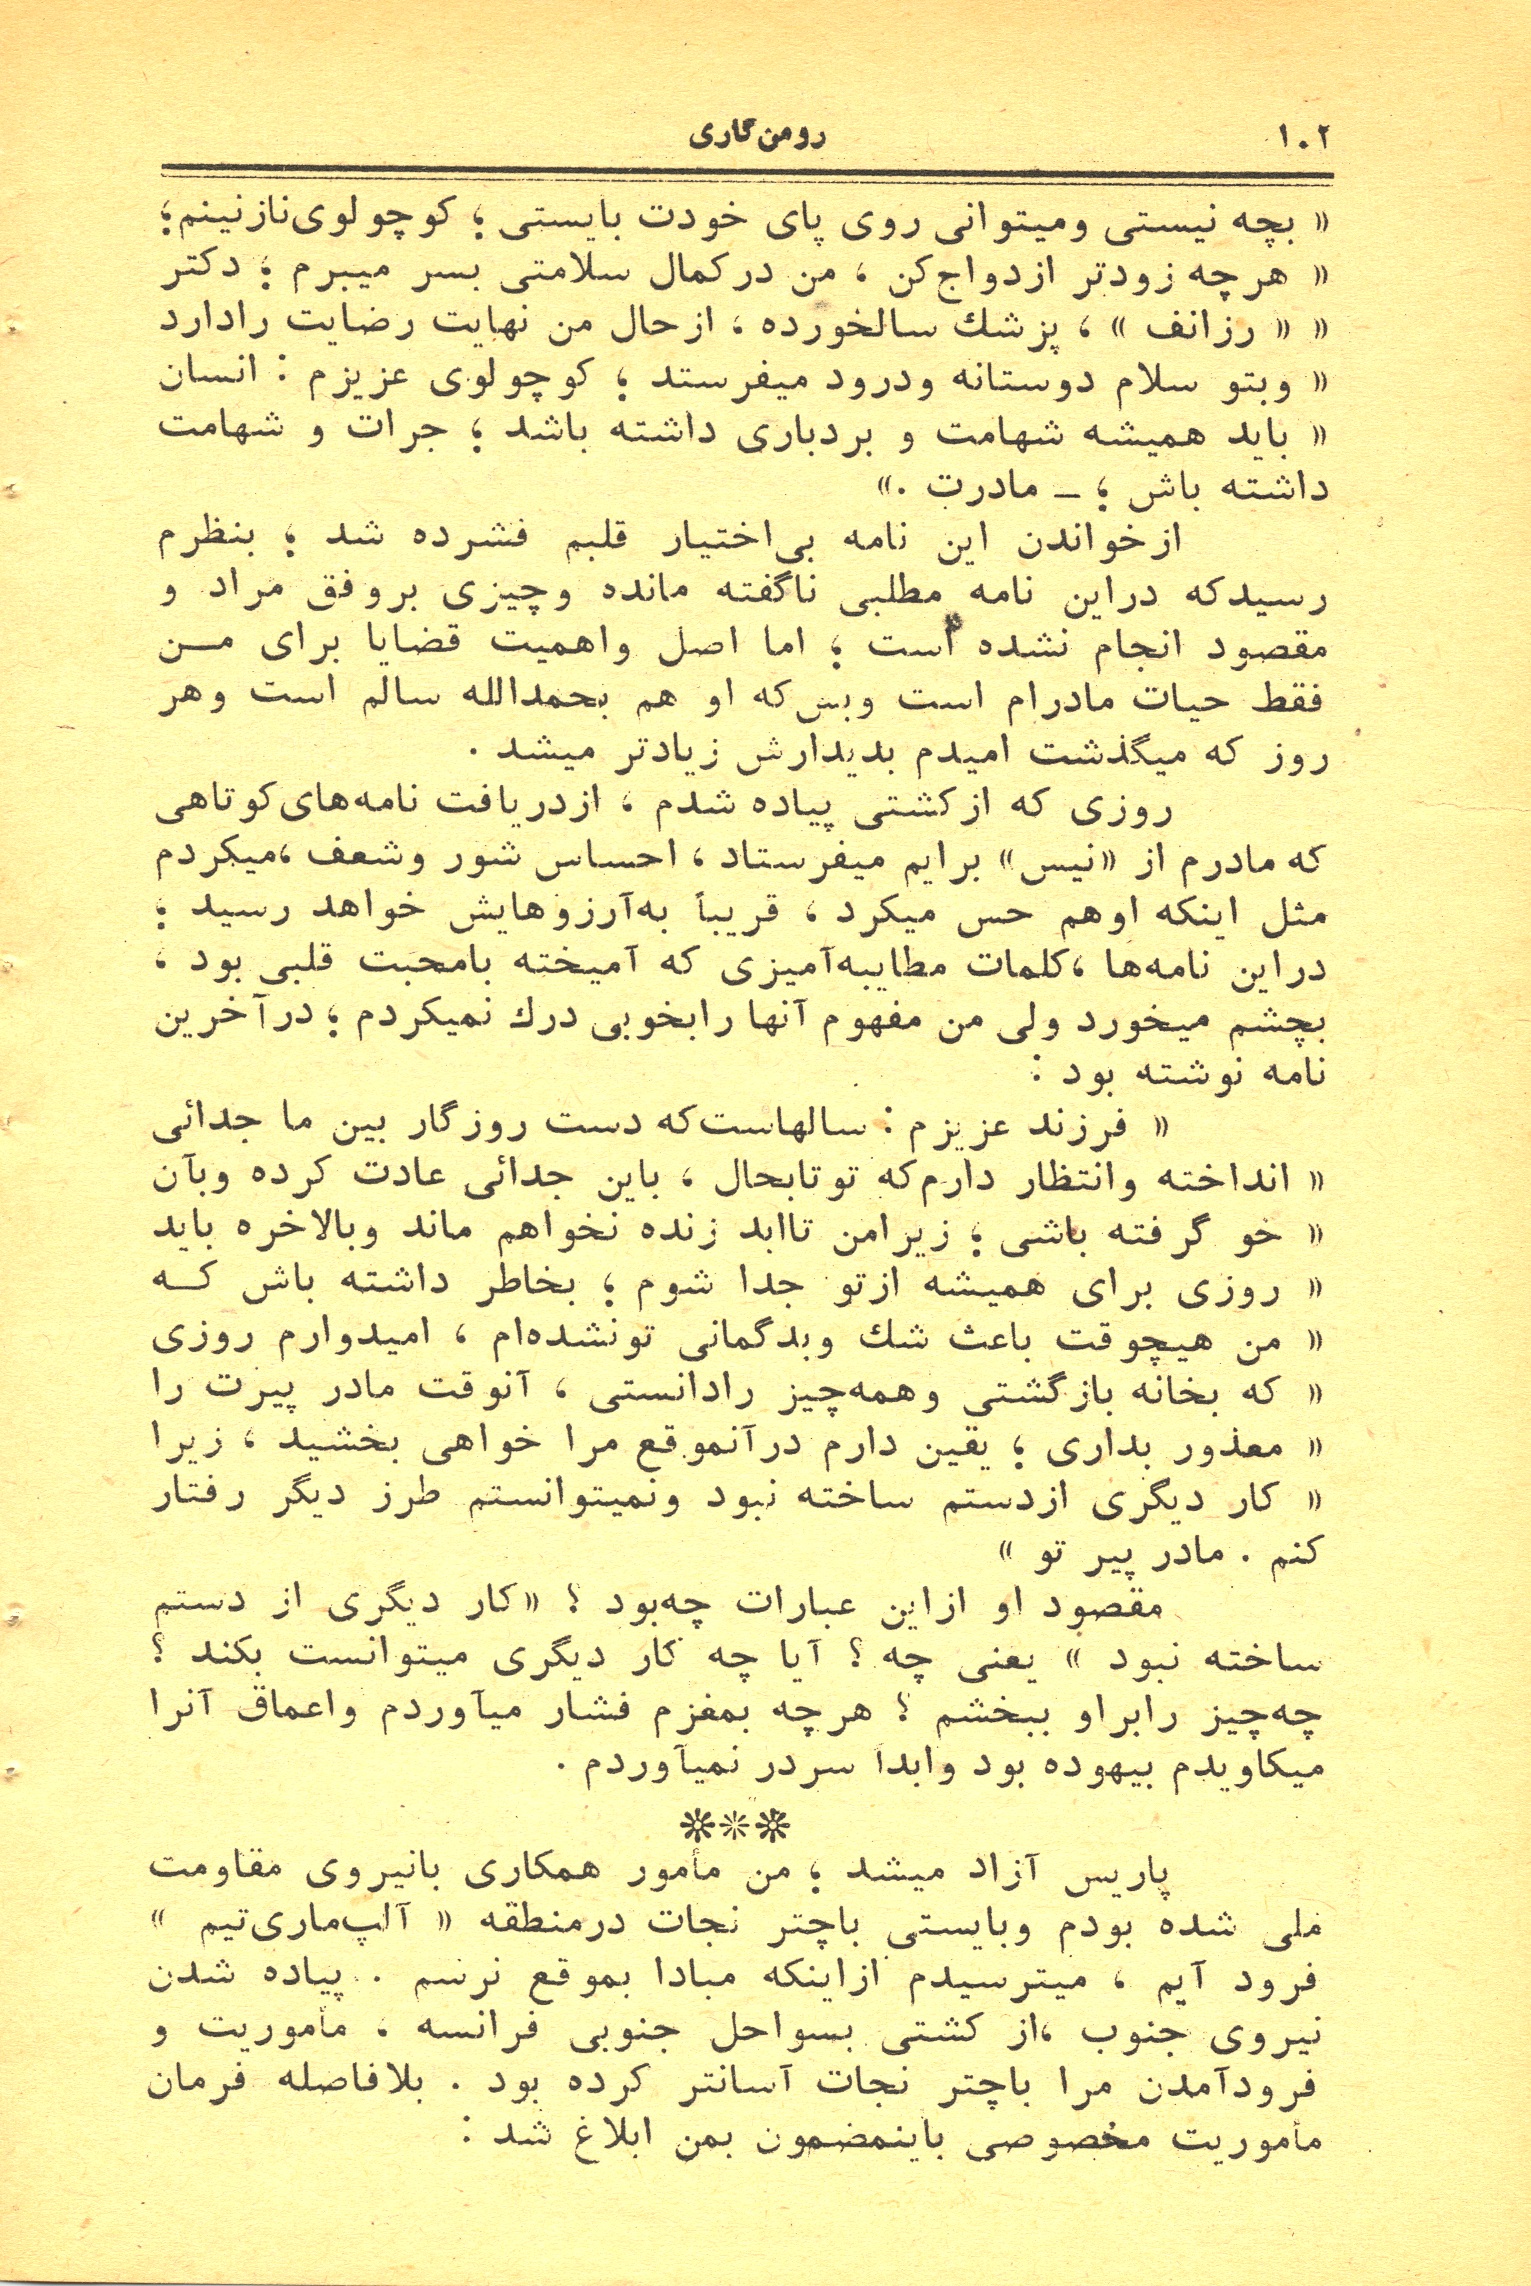 ۱۰۲
رومن گاری
« بچه نیستی ومیتوانی روی پای خودت بایستی ؛ کوچولوی نازنینم؛
« هرچه زودتر ازدواج کن ، من درکمال سلامتی بسر میبرم ؛ دکتر
« « رزانف » ، پزشك سالخورده ، ازحال من نهایت رضایت رادارد
« وبتو سلام دوستانه ودرود میفرستد ؛ کوچولوی عزیزم : انسان
« باید همیشه شهامت و بردباری داشته باشد ؛ جرات و شهامت
داشته باش ؛ ـ مادرت .»
ازخواندن این نامه بی‌اختیار قلبم فشرده شد ؛ بنظرم
رسیدکه دراین نامه مطلبی ناگفته مانده وچیزی بروفق مراد و
مقصود انجام نشده است ؛ اما اصل واهمیت قضایا برای مــن
فقط حیات مادرام است وبس‌که او هم بحمدالله سالم است وهر
روز که میگذشت امیدم بدیدارش زیادتر میشد .
روزی که ازکشتی پیاده شدم ، ازدریافت نامه‌های کوتاهی
که مادرم از «نیس» برایم میفرستاد ، احساس شور وشعف ،میکردم
مثل اینکه اوهم حس میکرد ، قریباً به‌آرزوهایش خواهد رسید ؛
دراین نامه‌ها ،کلمات مطایبه‌آمیزی که آمیخته بامحبت قلبی بود ،
بچشم میخورد ولی من مفهوم آنها رابخوبی درك نمیکردم ؛ درآخرین
نامه نوشته بود :
« فرزند عزیزم : سالهاست‌که دست روزگار بین ما جدائی
« انداخته وانتظار دارم‌که توتابحال ، باین جدائی عادت کرده وبآن
« خو گرفته باشی ؛ زیرامن تاابد زنده نخواهم ماند وبالاخره باید
« روزی برای همیشه ازتو جدا شوم ؛ بخاطر داشته باش کــه
« من هیچوقت باعث شك وبدگمانی تونشده‌ام ، امیدوارم روزی
« که بخانه بازگشتی وهمه‌چیز رادانستی ، آنوقت مادر پیرت را
« معذور بداری ؛ یقین دارم درآنموقع مرا خواهی بخشید ، زیرا
« کار دیگری ازدستم ساخته نبود ونمیتوانستم طرز دیگر رفتار
کنم . مادر پیر تو »
مقصود او ازاین عبارات چه‌بود ؟ «کار دیگری از دستم
ساخته نبود » یعنی چه ؟ آیا چه کار دیگری میتوانست بکند ؟
چه‌چیز رابراو ببخشم ؟ هرچه بمغزم فشار میآوردم واعماق آنرا
میکاویدم بیهوده بود وابداً سردر نمیآوردم .
❊❊❊
پاریس آزاد میشد ؛ من مأمور همکاری بانیروی مقاومت
ملی شده بودم وبایستی باچتر نجات درمنطقه « آلپ‌ماری‌تیم »
فرود آیم ، میترسیدم ازاینکه مبادا بموقع نرسم . پیاده شدن
نیروی جنوب ،از کشتی بسواحل جنوبی فرانسه ، مأموریت و
فرودآمدن مرا باچتر نجات آسانتر کرده بود . بلافاصله فرمان
مأموریت مخصوصی باینمضمون بمن ابلاغ شد :